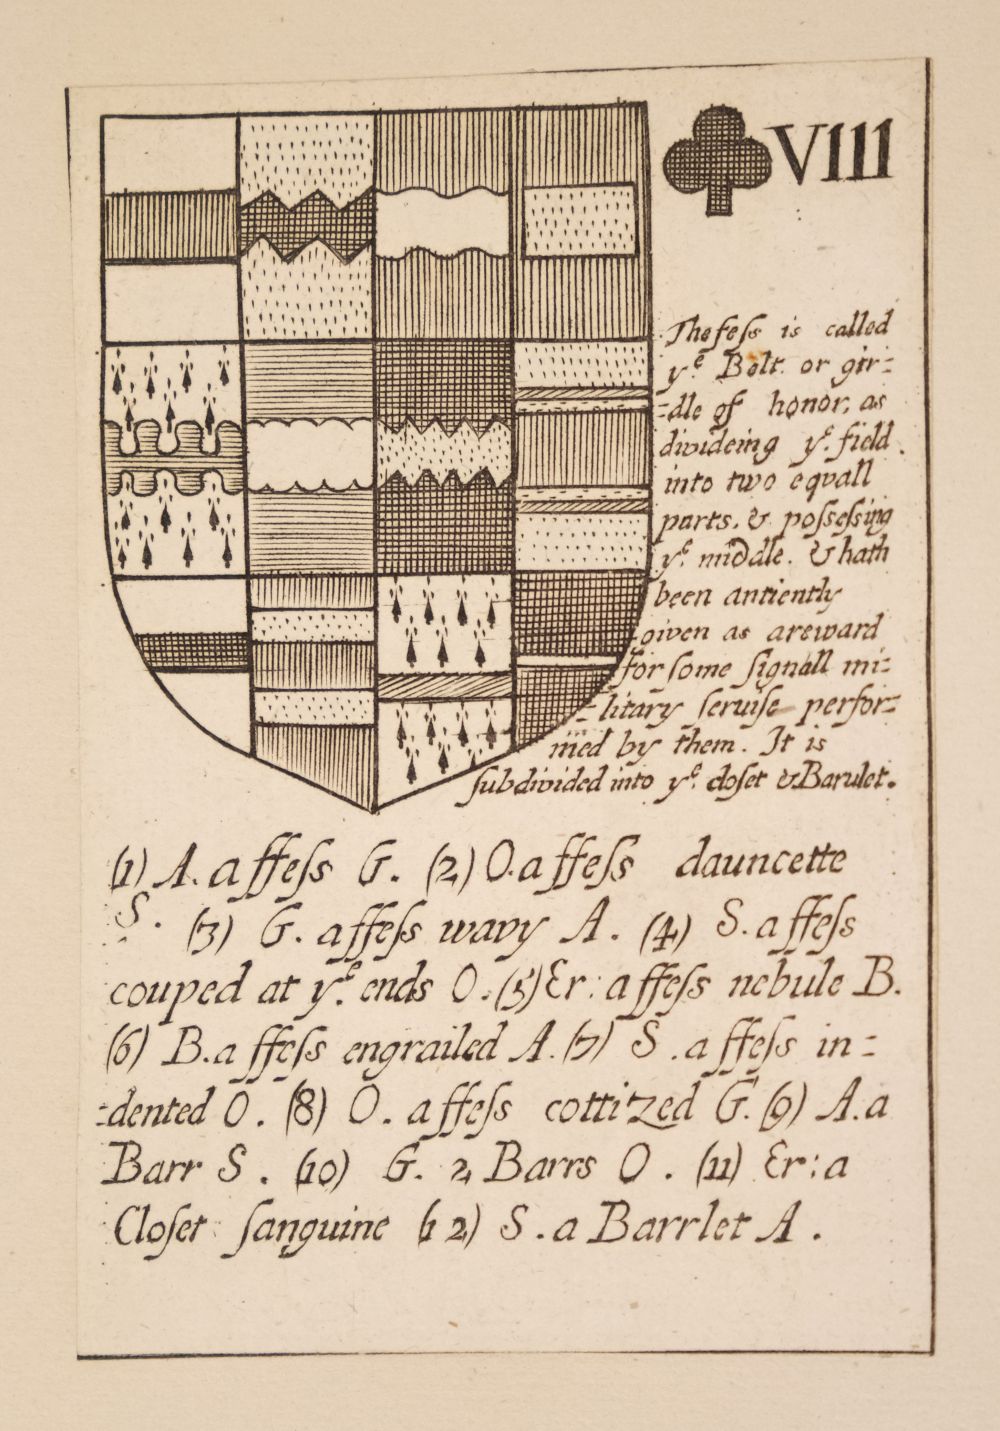 VIII
The feſs is called
yᵉ Belt. or gir:
:dle of honor, as
divideing yᵉ. field.
into two equall
parts. & poſseſsing
yᵉ. middle. & hath
been antiently
given as a reward
for some ſignall mi:
:litary ſeruiſe perfor:
med by them. It is
ſubdivided into yᵉ. cloſet & Barulet.
(1) A. a ffeſs G. (2) O. a ffeſs dauncette
S. (3) G. a ffeſs wavy A. (4) S. a ffeſs
couped at yᵉ. ends O. (5) Er: a ffeſs nebule B.
(6) B. a ffeſs engrailed A. (7) S. a ffeſs in:
:dented O. (8) O. a ffeſs cottized G. (9) A. a
Barr S. (10) G. 2 Barrs O. (11) Er: a
Cloſet ſanguine (12) S. a Barrlet A.